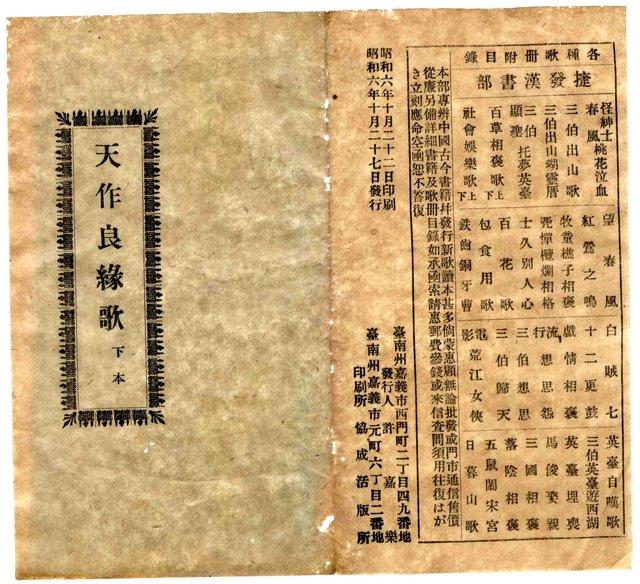 各種歌冊附目錄
捷發漢書部
怪紳士
春風桃花泣血
三伯出山歌
三伯出山瑚靈厝
三伯托夢英臺
顯聖
百草相褒歌上下
社會娛樂歌上下
望春風
紅鶯之鳴
牧童樵子相褒
憚欖爛相格
士久別人心
百花歌
包食用歌
鐵齒銅牙曹
白賊七
十二更鼓
戲情相褒
流想思怨
行
三伯想思
三伯歸天
電影荒江女俠
英臺自嘆歌
三伯英臺遊西湖
英臺埋喪
馬俊娶親
三國相褒
落陰相褒
五鼠鬧宋宮
日暮山歌
本部專辨中國古今書籍幷發行新歌讀本甚多倘蒙惠顧無論批發或門市通信售價
從廉另備詳細書籍及歌冊目錄如承函索請惠郵費參錢或來信查問須用往復はが
き立刻應命空函恕不答復
昭和六年十月二十二日印刷
昭和六年十月二十七日發行
臺南州嘉義市西門町二丁目四九番地
發行人 許嘉樂
臺南州嘉義市元町六丁目二番地
印刷所 協成活版所
天作良緣歌 下本